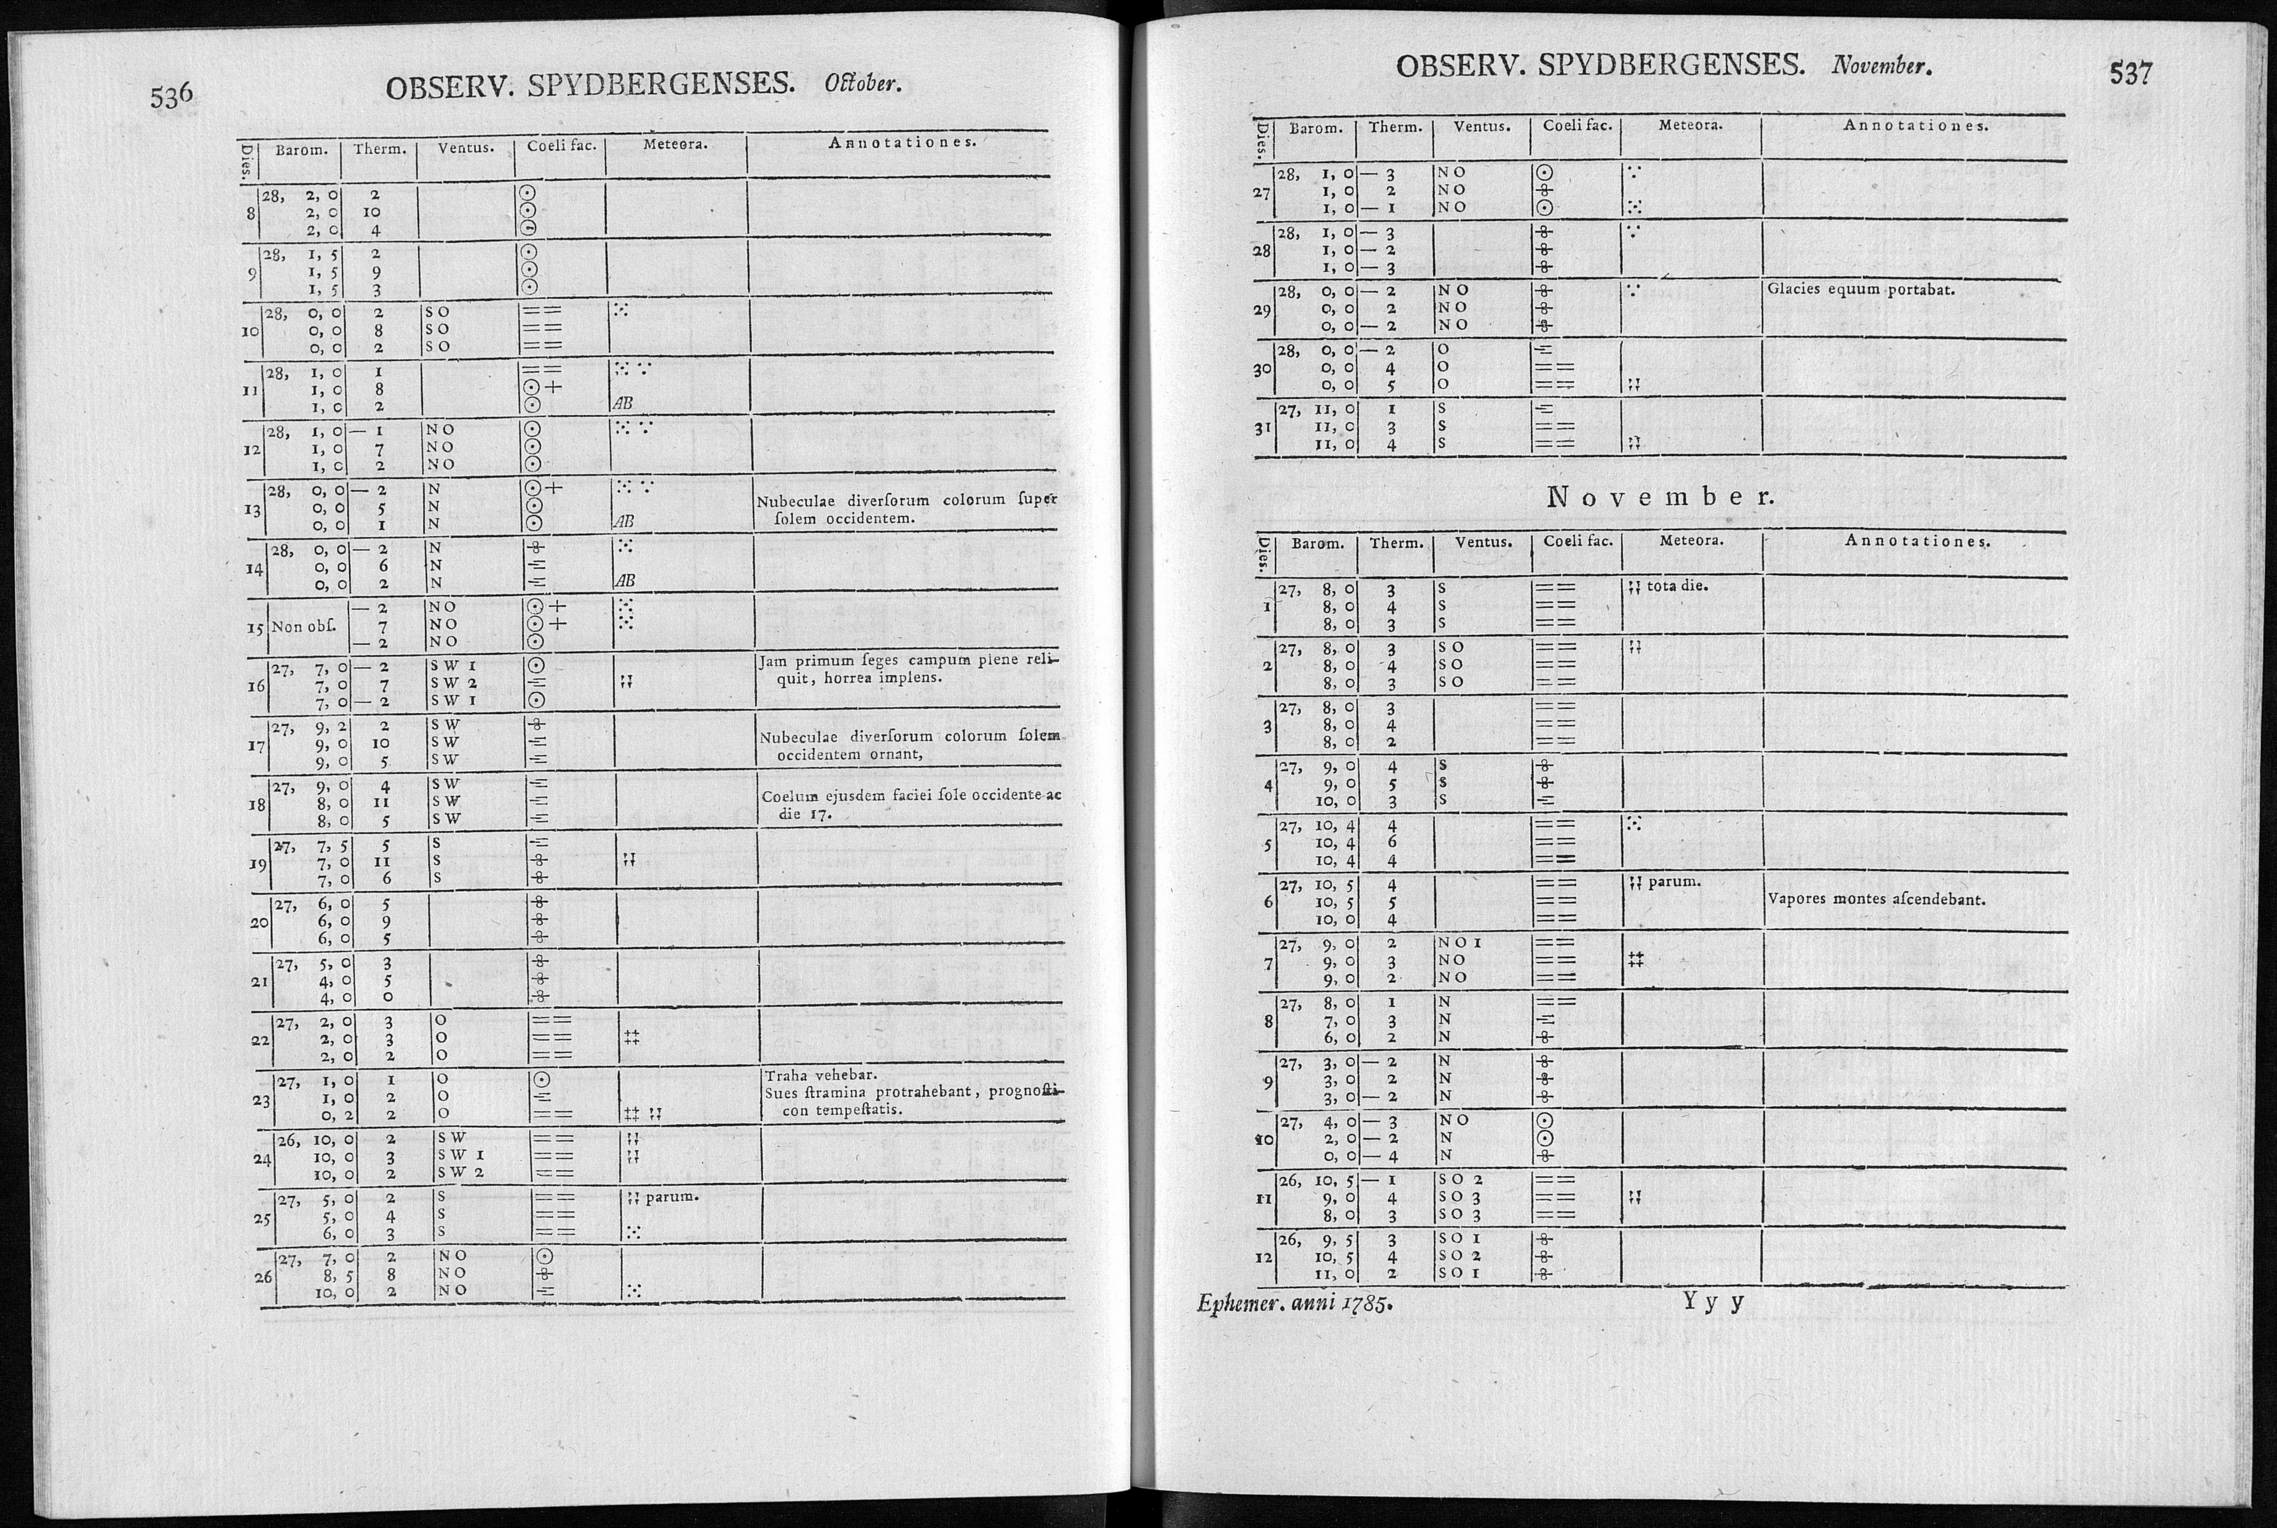 536 OBSERV. SPYDBERGENSES. October.
Dies. Barom. Therm. Ventus. Coeli fac. Meteora. Annotationes.
28, 2, 0 2 ☉
8 2, 0 10 ☉
2, 0 4
28, 1, 5 2 ☉
9 1, 5 9 ☉
1, 5 3 ☉
28, 0, 0 2 SO ==
10 0, 0 8 SO ==
0, 0 2 SO ==
28, 1, 0 1 ==
11 1, 0 8 ☉+
1, 0 2 ☉ AB
28, 1, 0 — 1 NO ☉
12 1, 0 7 NO ☉
1, 0 2 NO ☉
28, 0, 0 — 2 N ☉+
13 0, 0 5 N ☉ Nubeculae diverſorum colorum ſuper
0, 0 1 N ☉ AB ſolem occidentem.
28, 0, 0 — 2 N
14 0, 0 6 N
0, 0 2 N AB
— 2 NO ☉+
15 Non obſ. 7 NO ☉+
— 2 NO ☉
27, 7, 0 — 2 SW 1 ☉ Jam primum ſeges campum plene reli-
16 7, 0 7 SW 2 quit, horrea implens.
7, 0 — 2 SW 1 ☉
27, 9, 2 2 SW
17 9, 0 10 SW Nubeculae diverſorum colorum ſolem
9, 0 5 SW occidentem ornant,
27, 9, 0 4 SW
18 8, 0 11 SW Coelum ejusdem faciei ſole occidente ac
8, 0 5 SW die 17.
27, 7, 5 5 S
19 7, 0 11 S
7, 0 6 S
27, 6, 0 5
20 6, 0 9
6, 0 5
27, 5, 0 3
21 4, 0 5
4, 0 0
27, 2, 0 3 O ==
22 2, 0 3 O == ‡‡
2, 0 2 O ==
27, 1, 0 1 O ☉ Traha vehebar.
23 1, 0 2 O Sues ſtramina protrahebant, prognoſti-
0, 2 2 O == ‡‡ con tempeſtatis.
26, 10, 0 2 SW ==
24 10, 0 3 SW 1 ==
10, 0 2 SW 2 ==
27, 5, 0 2 S == parum.
25 5, 0 4 S ==
6, 0 3 S ==
27, 7, 0 2 NO ☉
26 8, 5 8 NO
10, 0 2 NO
OBSERV. SPYDBERGENSES. November. 537
Dies. Barom. Therm. Ventus. Coeli fac. Meteora. Annotationes.
28, 1, 0 — 3 NO ☉
27 1, 0 2 NO
1, 0 — 1 NO ☉
28, 1, 0 — 3
28 1, 0 — 2
1, 0 — 3
28, 0, 0 — 2 NO Glacies equum portabat.
29 0, 0 2 NO
0, 0 — 2 NO
28, 0, 0 — 2 O
30 0, 0 4 O ==
0, 0 5 O ==
27, 11, 0 1 S
31 11, 0 3 S ==
11, 0 4 S ==
November.
Dies. Barom. Therm. Ventus. Coeli fac. Meteora. Annotationes.
27, 8, 0 3 S == tota die.
1 8, 0 4 S ==
8, 0 3 S ==
27, 8, 0 3 SO ==
2 8, 0 4 SO ==
8, 0 3 SO ==
27, 8, 0 3 ==
3 8, 0 4 ==
8, 0 2 ==
27, 9, 0 4 S
4 9, 0 5 S
10, 0 3 S
27, 10, 4 4 ==
5 10, 4 6 ==
10, 4 4 ==
27, 10, 5 4 == parum.
6 10, 5 5 == Vapores montes aſcendebant.
10, 0 4 ==
27, 9, 0 2 NO 1 ==
7 9, 0 3 NO == ‡‡
9, 0 2 NO ==
27, 8, 0 1 N ==
8 7, 0 3 N
6, 0 2 N
27, 3, 0 — 2 N
9 3, 0 2 N
3, 0 — 2 N
27, 4, 0 — 3 NO ☉
10 2, 0 — 2 N ☉
0, 0 — 4 N
26, 10, 5 — 1 SO 2 ==
11 9, 0 4 SO 3 ==
8, 0 3 SO 3 ==
26, 9, 5 3 SO 1
12 10, 5 4 SO 2
11, 0 2 SO 1
Ephemer. anni 1785. Yyy